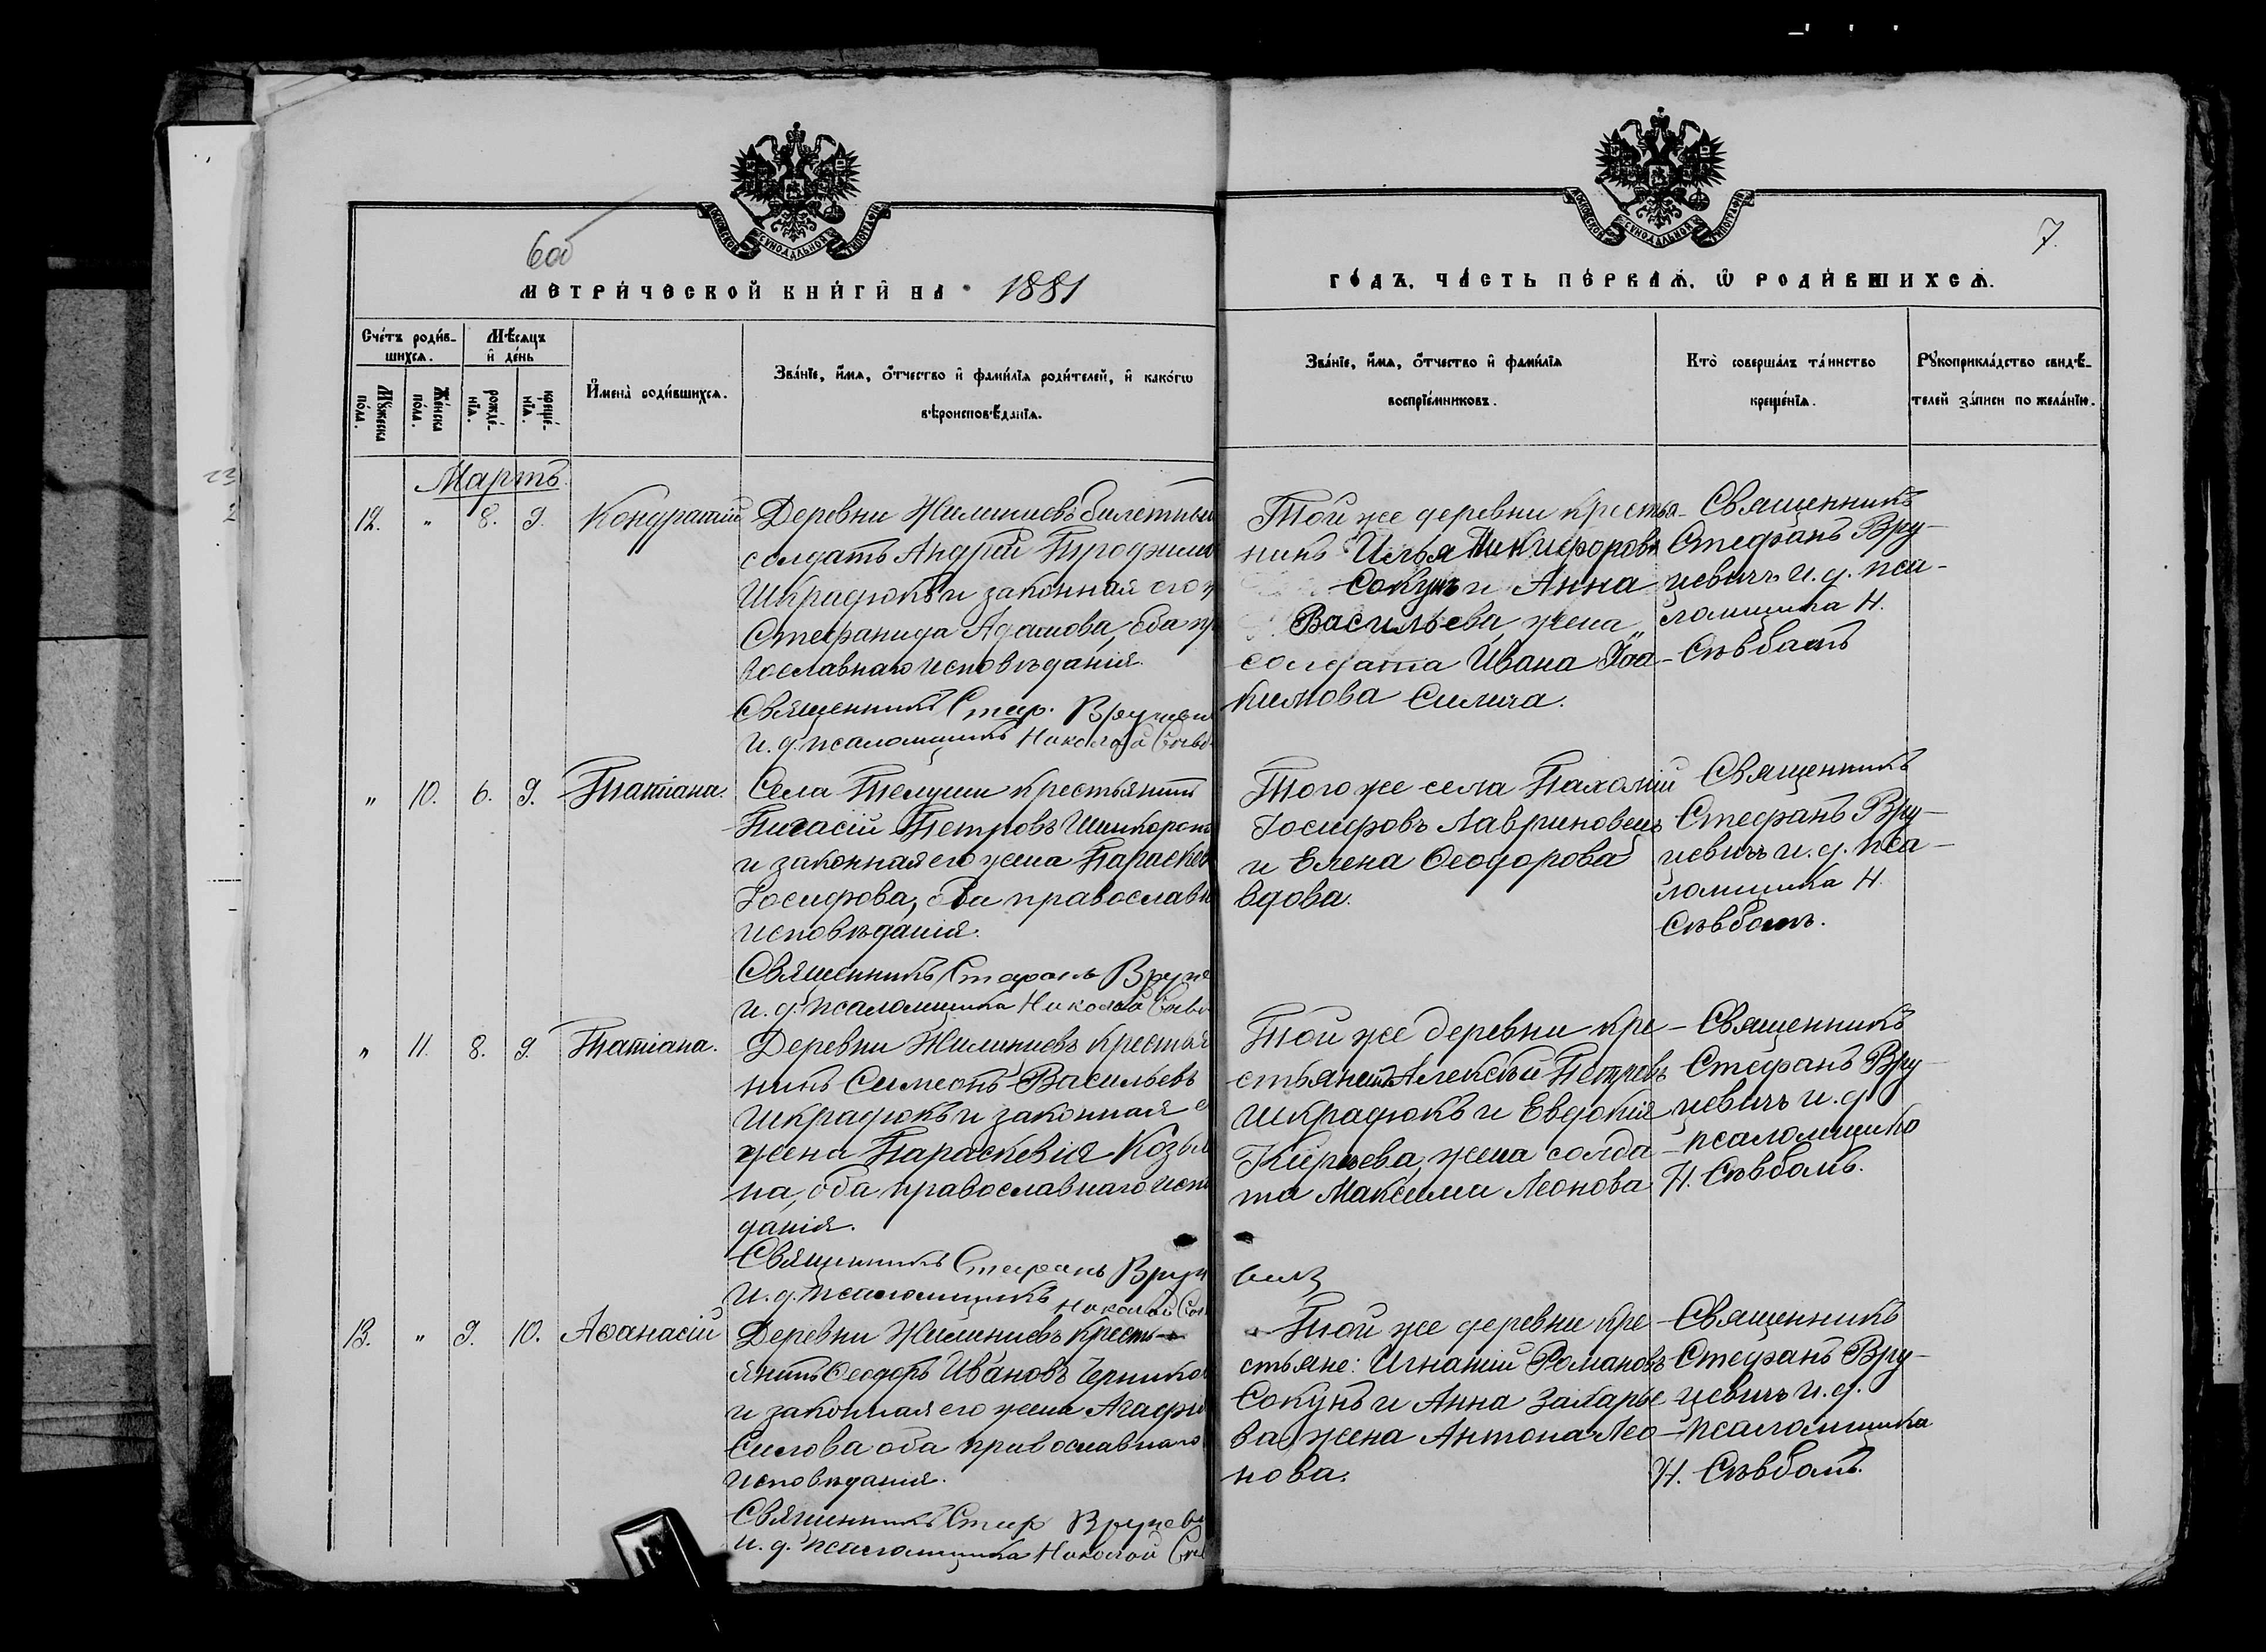 МОСКОВСКОЙ СУНОДАЛЬНОЙ ТИПОГРАФІИ
МОСКОВСКОЙ СУНОДАЛЬНОЙ ТИПОГРАФІИ
600
7.
МЕТРИ́ЧЕСКОЙ КНИ́ГИ НА 1881
ГО́ДЪ, ЧА́СТЬ ПЕ́РВАѦ, Ѽ РОДИ́ВШИХСѦ.
Сче́тъ роди́в-
шихсѧ.
Мѣ́сѧцъ
и҆ де́нь
Мꙋ́жеска по́ла.
Же́нска по́ла.
рожде́-нїѧ.
креще́-нїѧ.
И҆мена̀ роди́вшихсѧ.
Зва́нїе, и҆́мѧ, ѻ҆́тчество и҆ фами́лїѧ роди́телей, и҆ како́гѡ
вѣроисповѣ́данїѧ.
Зва́нїе, и҆́мѧ, ѻ҆́тчество и҆ фами́лїѧ
воспрїе́мниковъ.
Кто̀ соверша́лъ та́инство
креще́нїѧ.
Рꙋкоприкла́дство свидѣ́-
телей за́писи по жела́нїю.
Мартъ.
12. " 8. 9. Кондратій
Деревни Жилиничъ билетный
солдатъ Андрей Трофимов
Шкрадюкъ и законная его ж
Стефанида Адамова, оба пра
вославнаго исповѣданія.
Священникъ Стеф. Вруцеви
И. д. псаломщика Николай
Той же деревни крестья-
нинъ Илья Никифоровъ
Сокунъ и Анна
Васильева, жена
солдата Ивана Іоа-
кимова Силича.
Священникъ
Стефанъ Вру-
цевичъ и. д. пса-
ломщика Н.
Съвбатъ
" 10. 6. 9. Татіана.
Села Телуши крестьянинъ
Пигасій Петровъ
и законная его жена Параскев
Іосифова, оба православн
исповѣданія.
Священникъ Стефанъ Вруце
и. д. псаломщика Николай
Того же села Пахомій
Іосифовъ Лавриновецъ
и Елена Ѳеодорова
вдова.
Священникъ
Стефанъ Вру-
цевичъ и. д. пса-
ломщика Н.
Съвбатъ.
" 11. 8. 9. Татіана.
Деревни Жилиничъ крестья
нинъ Симеонъ Васильевъ
Шкрадюкъ и законная е
жена Параскевія Козьми
на, оба православнаго исп
данія.
Священникъ Стефанъ Вруц
И. д. псаломщика Николай
Той же деревни кре-
стьянинъ Алексѣй Петровъ
Шкрадюкъ и Евдокія
Кирѣева, жена солда-
та Максима Леонова
Священникъ
Стефанъ Вру-
цевичъ и. д.
псаломщика
Н. Съвбатъ.
13. " 9. 10. Аѳанасій
Деревни Жилиничъ кресть-
янинъ Ѳеодоръ Ивановъ
и законная его жена Агафі
Силова оба православнаго
исповѣданія.
Священникъ Стеф Вруцеви
и. д. псаломщика Николай
Той же деревни кре-
стьяне: Игнатій Романовъ
Сокунъ и Анна Захарье
ва, жена Антона Лео-
нова.
Священникъ
Стефанъ Вру-
цевичъ и. д.
псаломщика
Н. Съвбатъ.